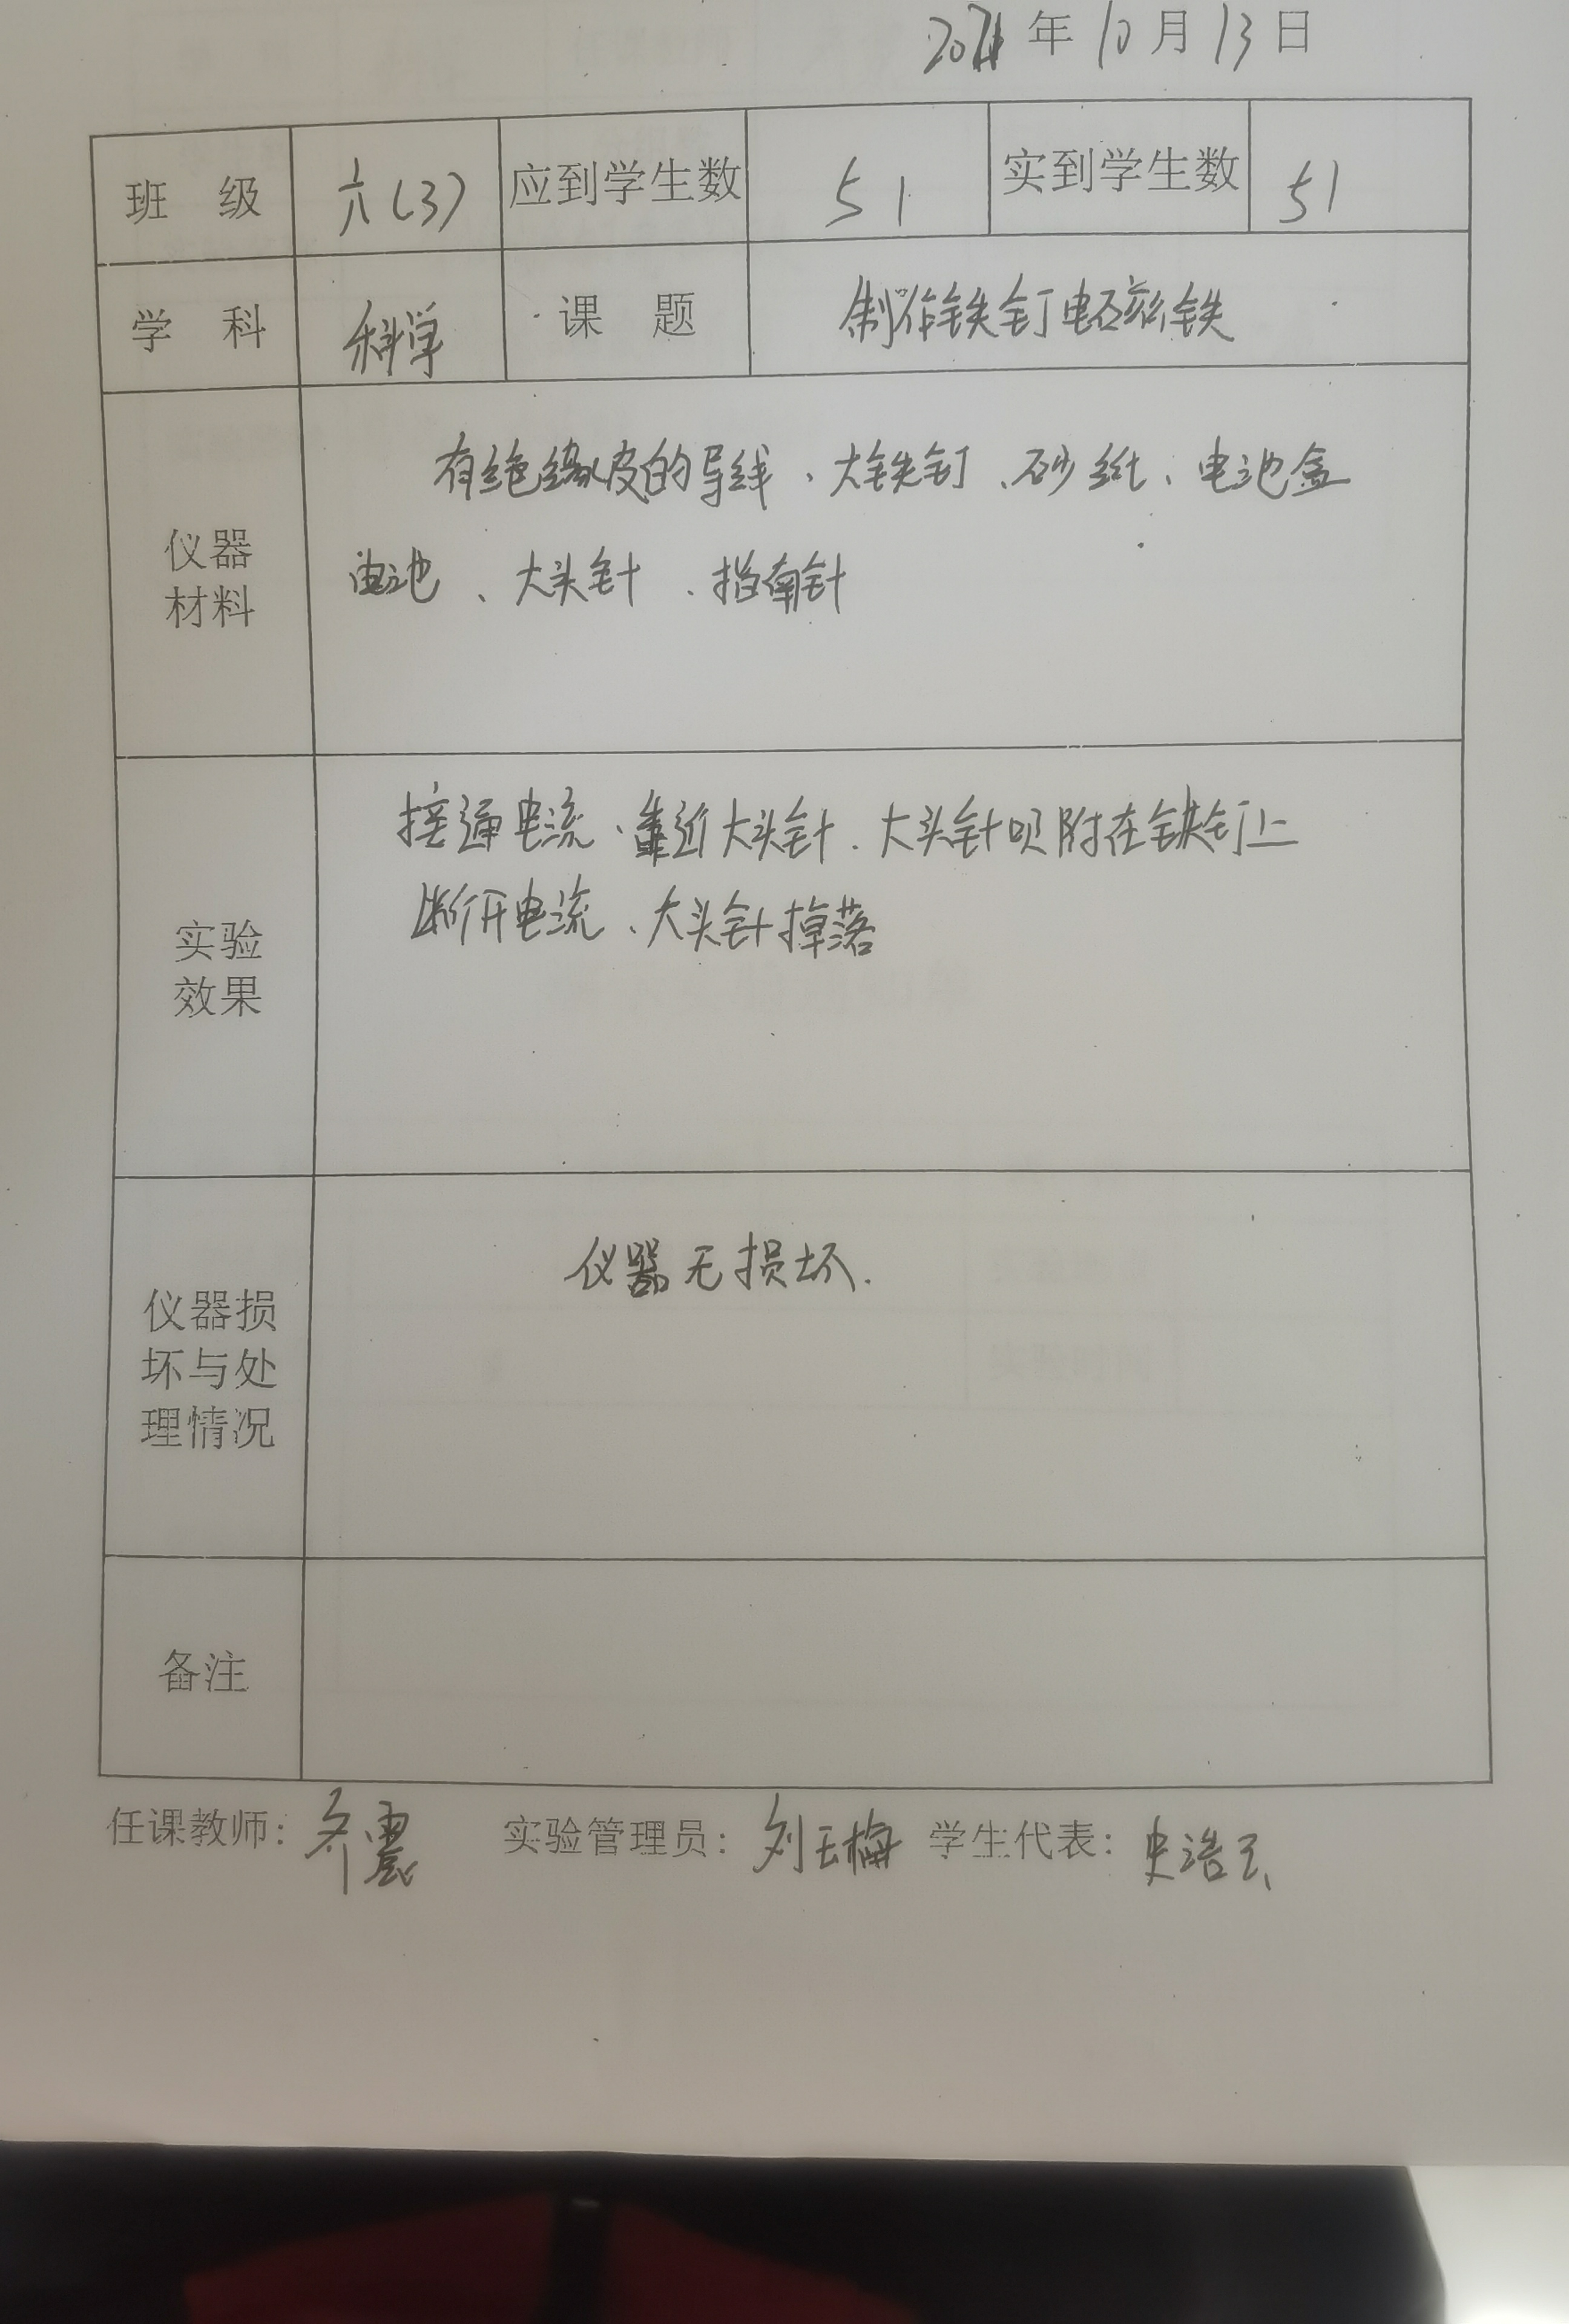 年10月13日
班 级 六(3) 应到学生数 51 实到学生数 51
学 科 科学 课 题 制作铁钉电磁铁
仪器
材料
有绝缘皮的导线、大铁钉、砂纸、电池盒
电池、大头针、指南针
实验
效果
接通电流、靠近大头针、大头针吸附在铁钉上
断开电流、大头针掉落
仪器损
坏与处
理情况
仪器无损坏.
备注
任课教师: 齐震 实验管理员: 刘玉梅 学生代表: 史浩